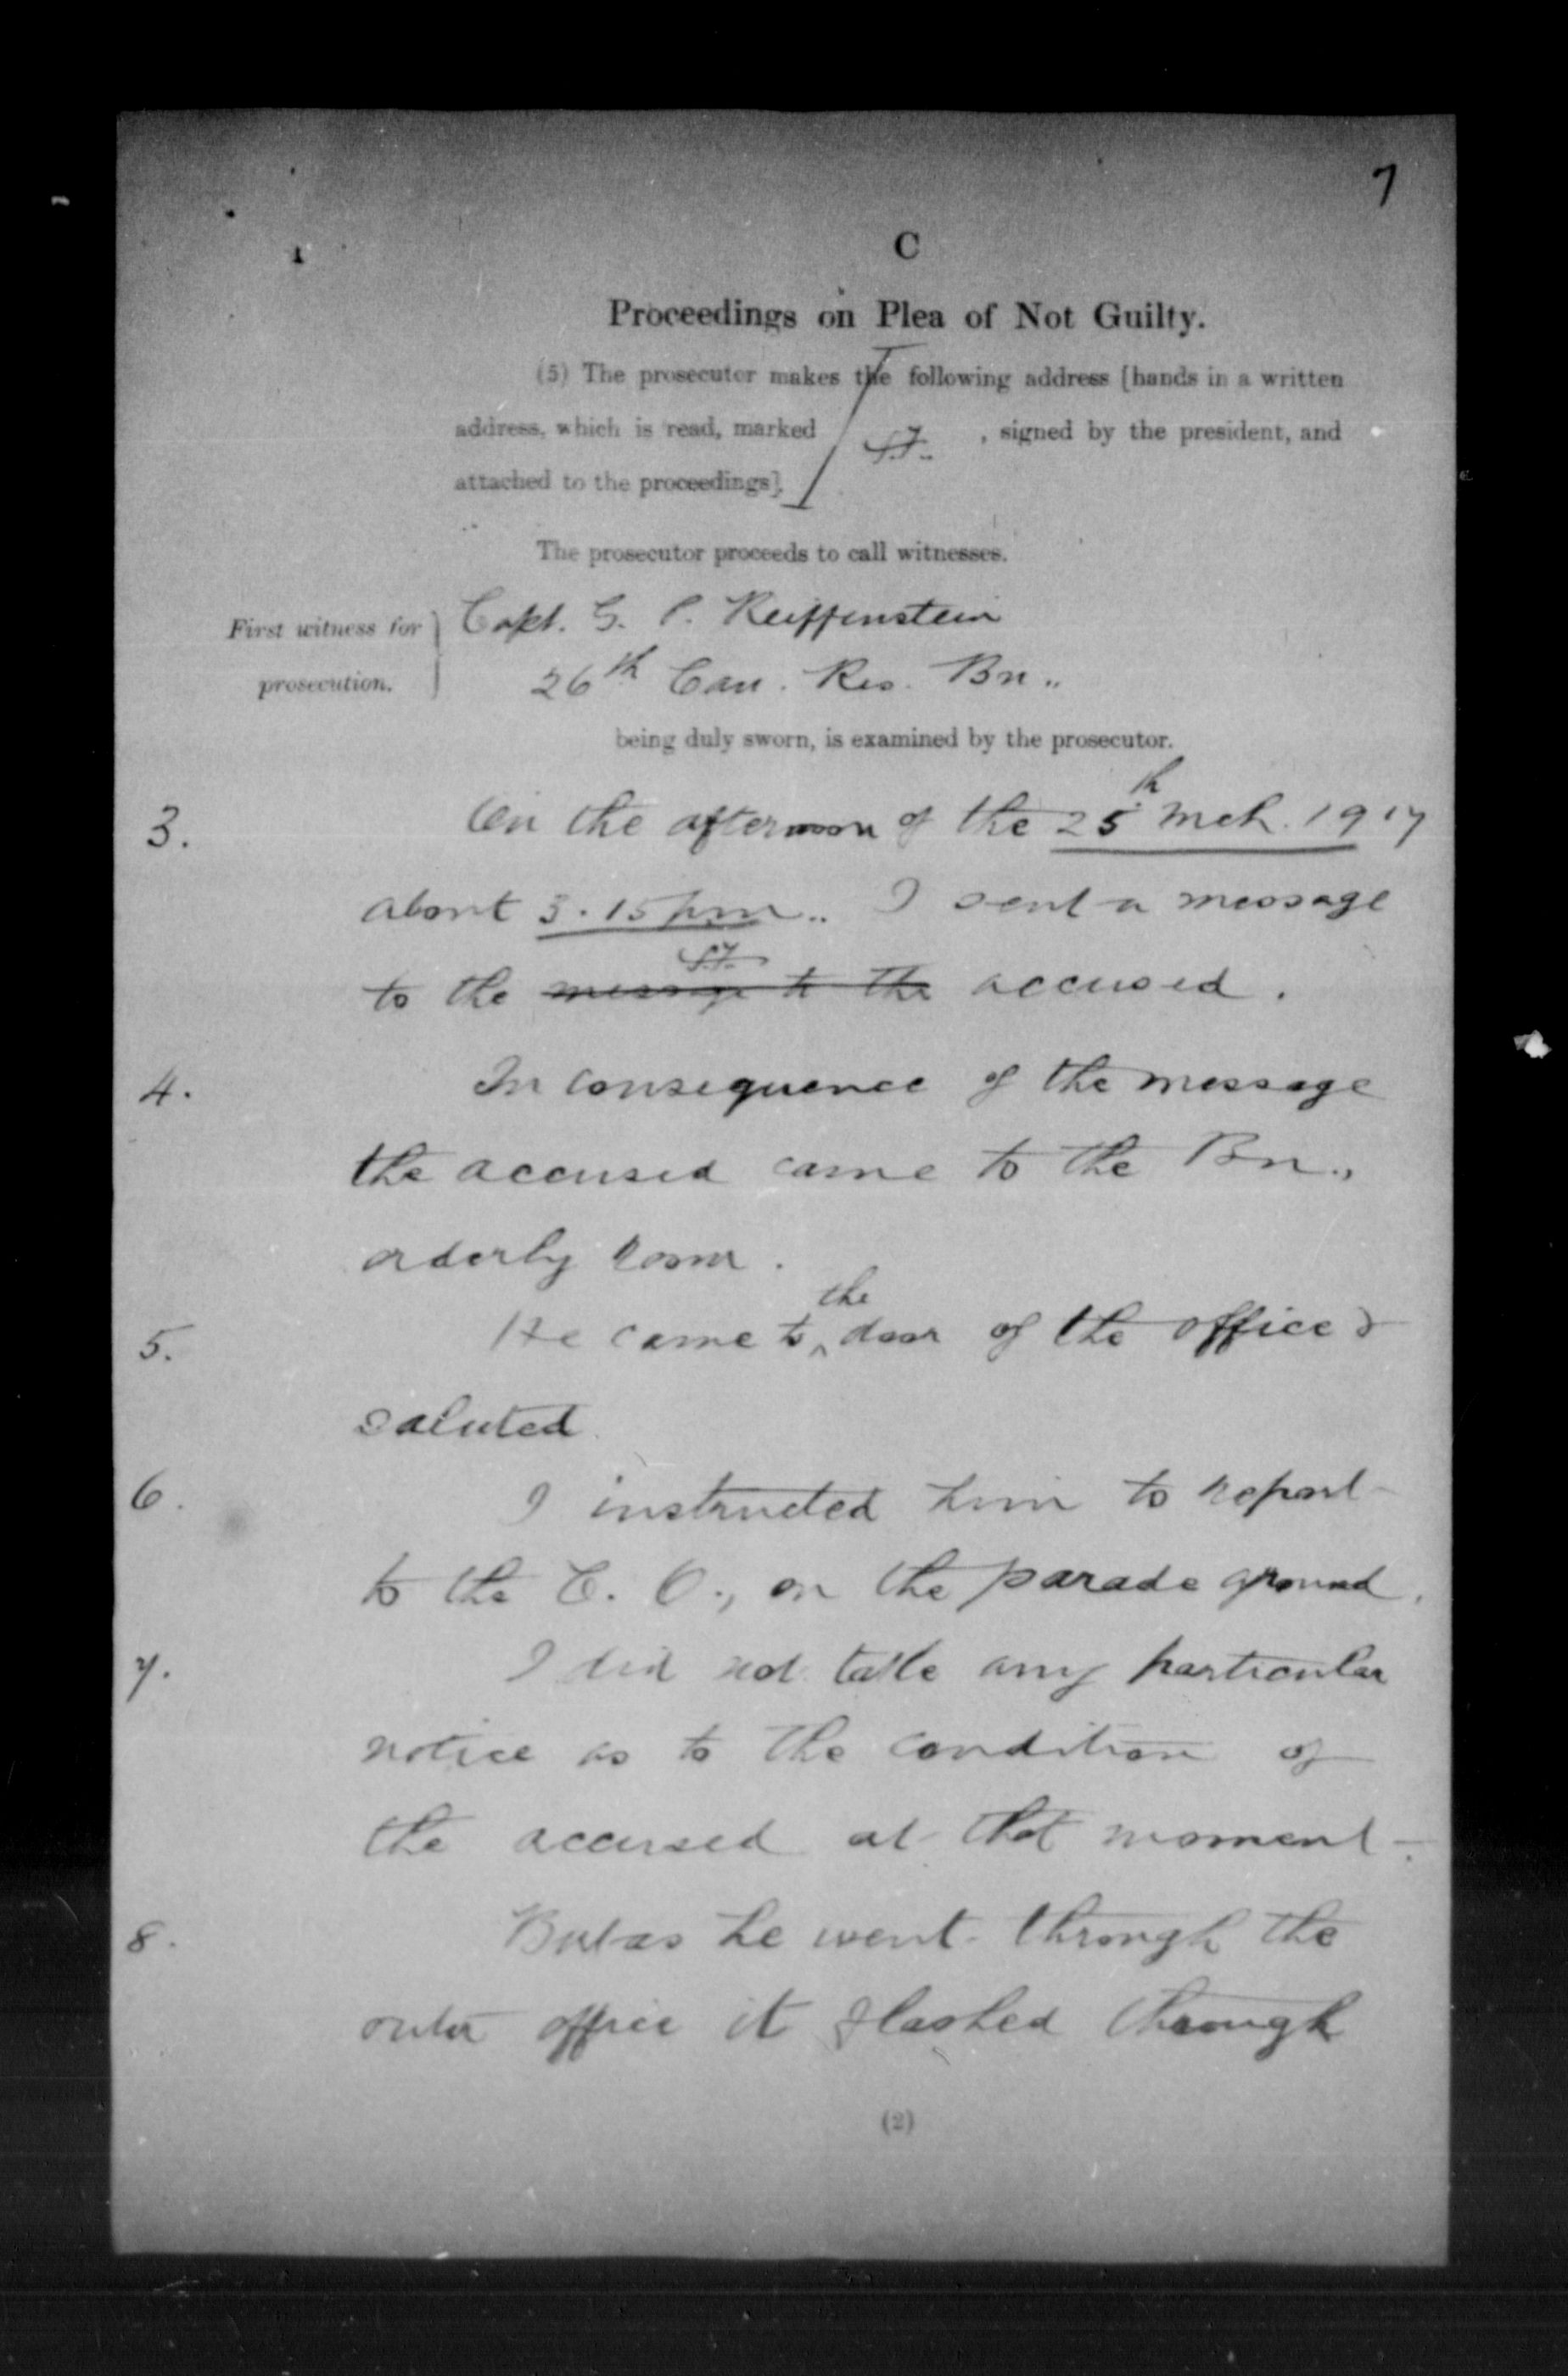 7
C
Proceedings on Plea of Not Guilty.
(5) The prosecutor makes the following address [hands in a written
address, which is read, marked , signed by the president, and
attached to the proceedings].
The prosecutor proceeds to call witnesses.
First witness for prosecution.
Capt. G. P. Reiffenstein
26th Can. Res. Bn..
being duly sworn, is examined by the prosecutor.
3. On the afternoon of the 25th Mch. 1917
about 3.15 pm.. I sent a message
to the message to the accused.
4. In consequence of the message
the accused came to the Bn.,
orderly room.
5. He came to the door of the office &
saluted.
6. I instructed him to report
to the C. O., on the parade ground.
7. I did not take any particular
notice as to the condition of
the accused at that moment.
8. But as he went through the
outer office it flashed through
(2)